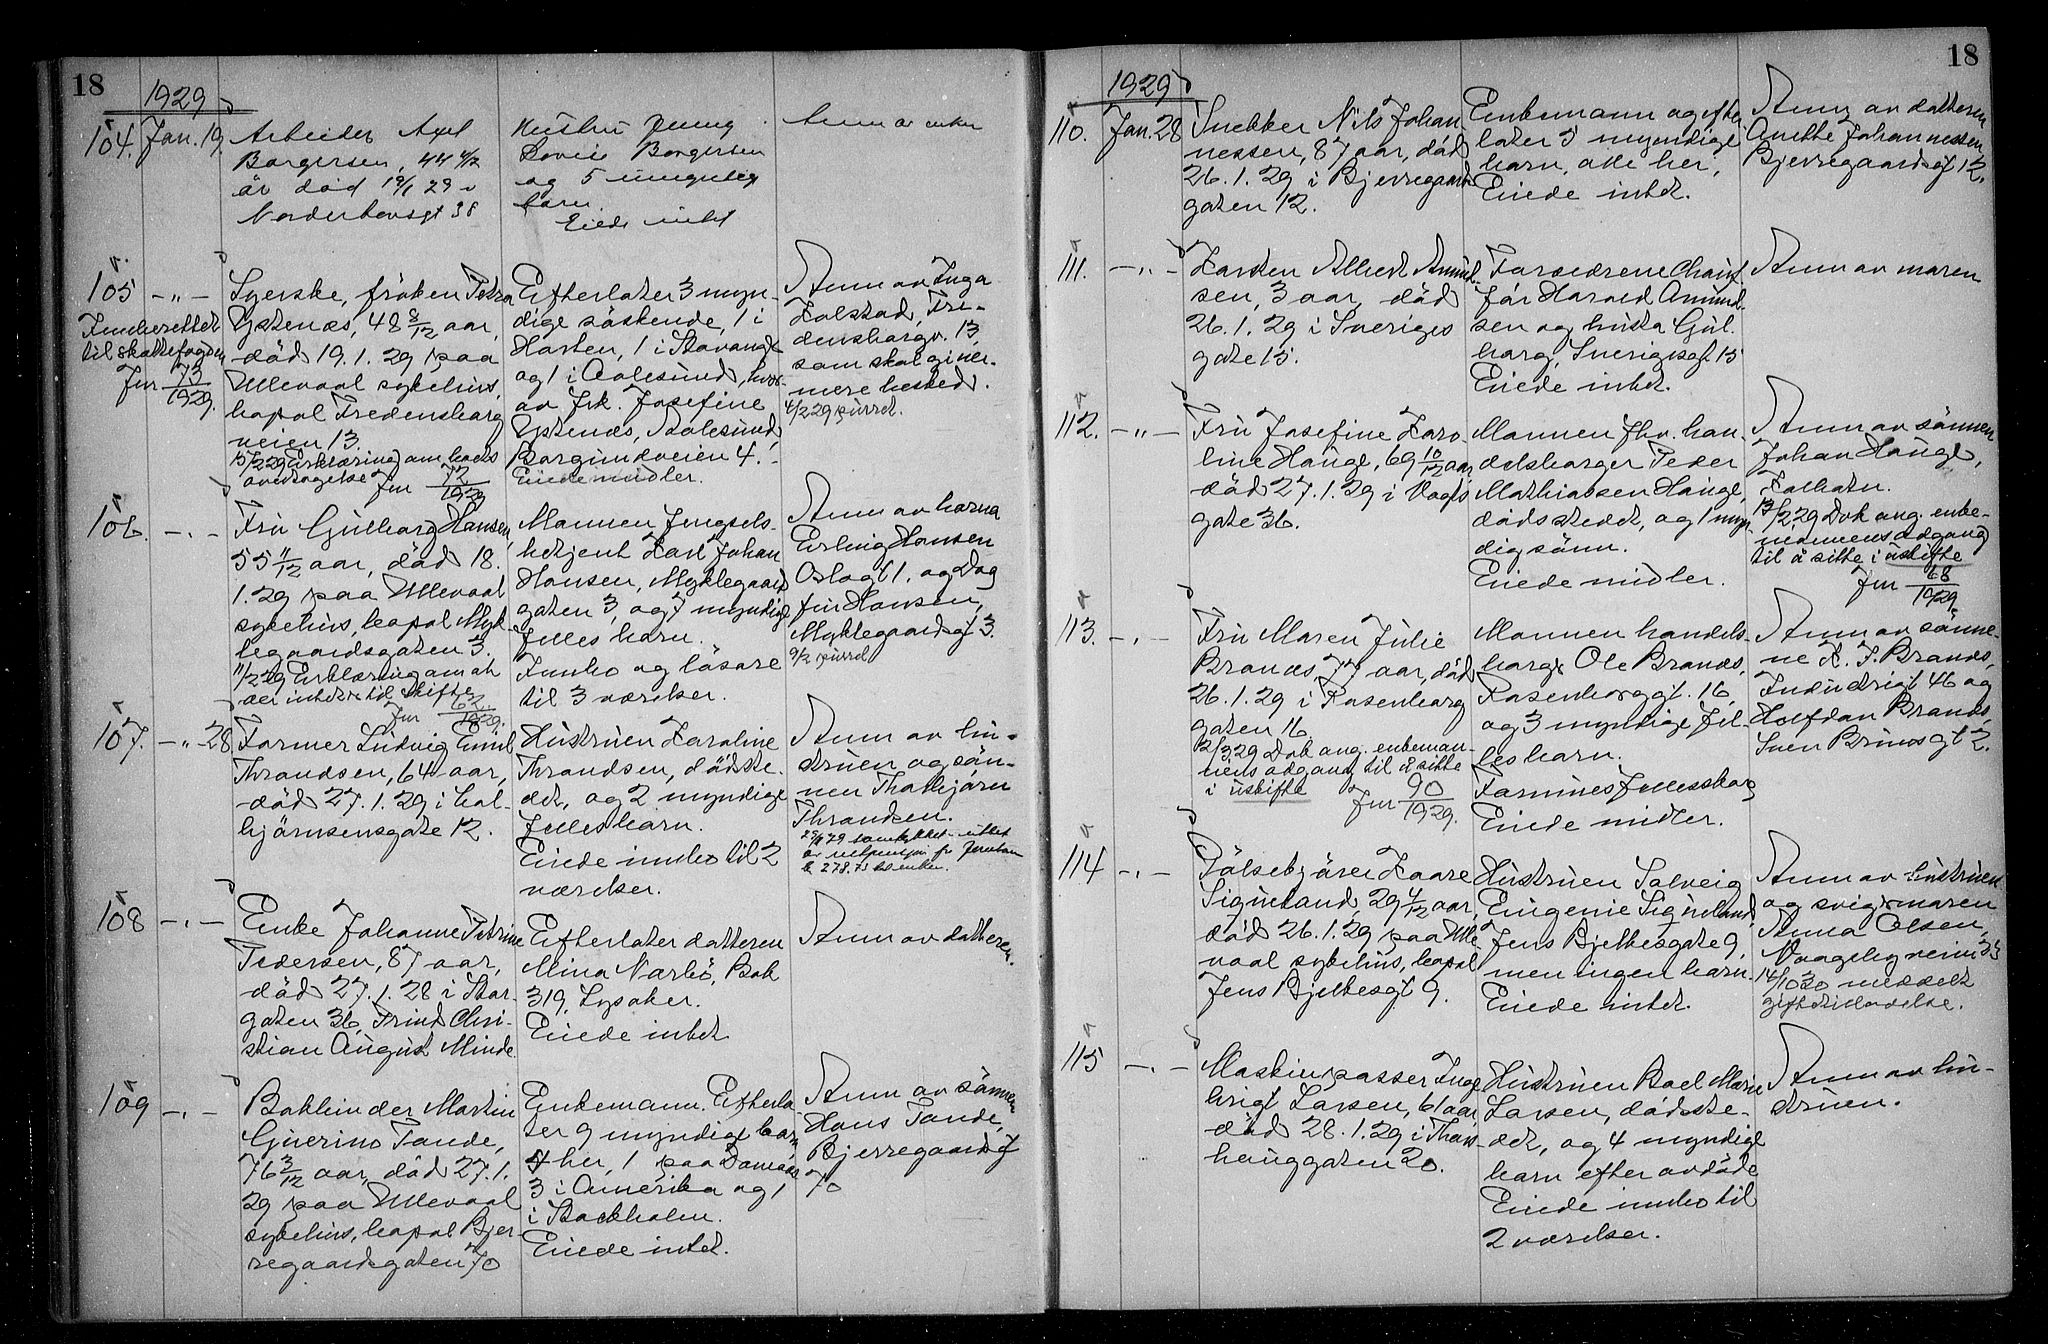 18
1929
104. Jan. 19.
Arbeider Axel
Borgersen, 44 4/12
år død 19/1 29 i
Norderhovsgt 38
Hustru Jenny
Lovise Borgersen
og 5 umyndig
barn.
Eiede intet
Anm av enken
105 -"-
Fremberettet
til skattefogden
Jnr 73/1929.
Syerske, frøken Petra
Ystenæs, 48 8/12 aar,
død 19.1.29 paa
Ullevaal sykehus,
bopæl Fredensborg
veien 13.
15/2 29 Erklæring om boets
overtagelse Jnr 72/1929
Efterlater 3 myn-
dige søskende, 1 i
Horten, 1 i Stavanger
og 1 i Aalesund, hvor-
av frk. Josefine
Ystenæs, Aalesund,
Borgundveien 4.
Eiede midler.
Anm av Inga
Kolstad, Fre-
densborgv. 13,
som skal gi nær-
mere besked.
4/2 29 purret.
106. -"-
Fru Gulborg Hansen,
55 11/12 aar, død 18.
1.29 paa Ullevaal
sykehus, bopæl Myk-
legaardsgaten 3.
11/2 29 Erklæring om at
der intet er til skifte
Jnr 62/1929.
Mannen fengsels-
betjent Karl Johan
Hansen, Myklegaard
gaten 3, og 7 myndige
felles barn.
Innbo og løsøre
til 3 værelser.
Anm av barna
Erling Hansen
Oslogt 1, og Dag
finn Hansen,
Myklegaardsgt 3.
9/2 purret
107. -"- 28
Former Ludvig Emil
Thrandsen, 64 aar,
død 27.1.29 i Kol-
bjørnsensgate 12.
Hustruen Karoline
Thrandsen, dødste-
det, og 2 myndige
felles barn.
Eiede innbo til 2
værelser.
Anm av hu-
struen og søn-
nen Thorbjørn
Thrandsen.
108 -"-
Enke Johanne Petrine
Pedersen, 87 aar,
død 27.1.28 i Stor-
gaten 36, Trind Chri-
stian August Minde
Efterlater datteren
Mina Narbø, Bok
319, Lysaker.
Eiede intet
Anm av datteren.
109 -"-
Bokbinder Martin
Guerino Tande,
76 3/12 aar, død 27.1.
29 paa Ullevaal
sykehus, bopæl Bjer
regaardsgaten 70
Enkemann. Efterla-
ter 9 myndige barn
4 her, 1 paa Danmark
3 i Amerika og 1
i Stockholm.
Eiede intet.
Anm av sønnen
Hans Tande,
Bjerregaardsgt
70
18
1929
110. Jan. 28
Snekker Nils Johan
nessen, 87 aar, død
26.1.29 i Bjerregaard
gaten 12.
Enkemann og efter
later 5 myndige
barn, alle her.
Eiede intet.
Anm av datteren
Anette Johannessen
Bjerregaardsgt 12.
111. -"-
Karsten Albert Amund-
sen, 3 aar, død
26.1.29 i Sveriges
gate 15.
Foreldrene Chauf
før Harald Amund-
sen og hustru Gul-
borg, Sverigesgt 15
Eiede intet.
Anm av moren
112. -"-
Fru Josefine Karo-
line Hauge, 69 10/12 aar,
død 27.1.29 i Vogts
gate 36.
Mannen fhv. han-
delsborger Peder
Mathiassen Hauge,
dødsstedet, og 1 myn-
dig sønn.
Eiede midler.
Anm av sønnen
Johan Hauge,
Kolbotn.
13/2 29 Dok ang. enke-
mannens adgang
til å sitte i uskifte
Jnr 68/1929
113. -"-
Fru Maren Julie
Brænæs 77 aar, død
26.1.29 i Rosenborg
gaten 16.
12/3 29 Dok ang. enkeman-
nens adgang til å sitte
i uskifte
Jnr 90/1929.
Mannen handels-
borger Ole Brænæs,
Rosenborggt. 16,
og 3 myndige fel-
les barn.
Formuesfellesskap
Eiede midler.
Anm av sønne-
ne K. F. Brænæs,
Industrigt 46 og
Halfdan Brænæs,
Sven Brunsgt 2.
114 -"-
Pølsekjører Kaare
Sigueland, 29 4/12 aar,
død 26.1.29 paa Ulle-
vaal sykehus, bopæl
Jens Bjelkesgt 9.
Hustruen Solveig
Eugenie Sigueland,
Jens Bjelkesgate 9,
men ingen barn.
Eiede intet.
Anm av hustruen
og svigermoren
Anna Olsen,
14/10 30 meddelt
giftetilladelse.
115 -"-
Maskinpasser Inge
brigt Larsen, 61 aar
død 28.1.29 i Thors
hauggaten 20.
Hustruen Boel Marie
Larsen, dødsste-
det, og 4 myndige
barn efter avdøde
Eiede innbo til
2 værelser.
Anm av hu-
struen.